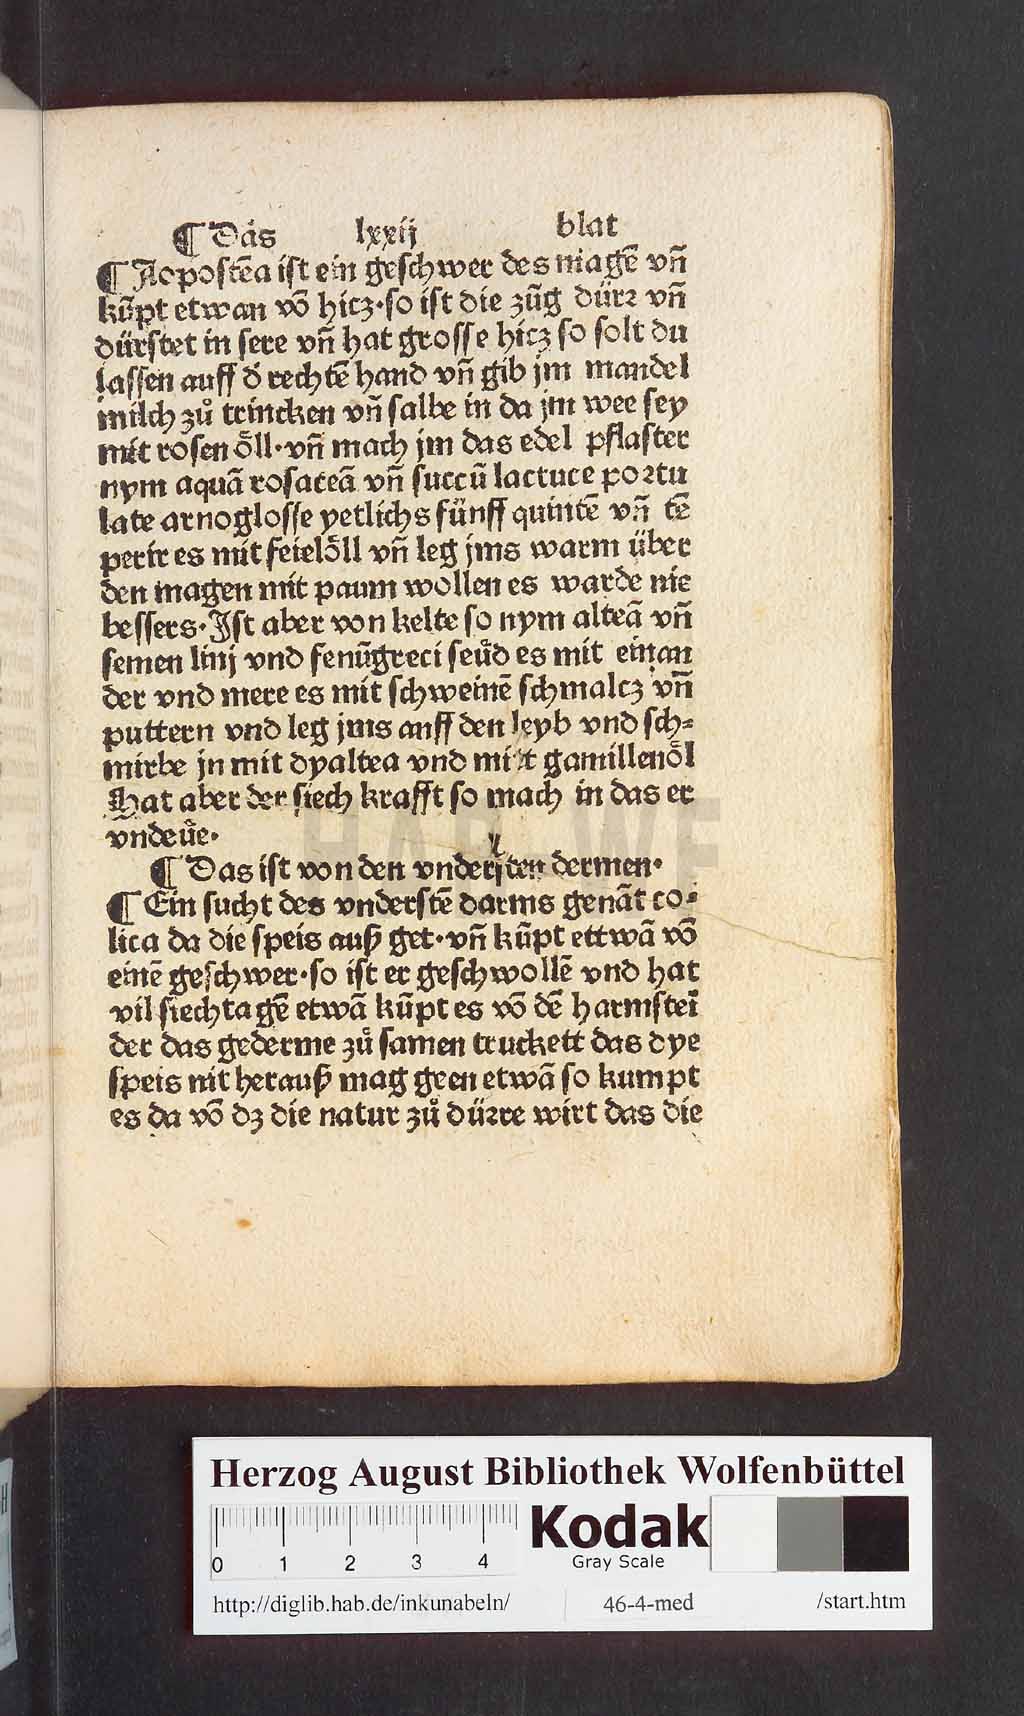 ¶ Das lxxij blat
¶ Acpostēa ist ein geschwer des magē vñ
kūpt etwan vō hicz·so ist die zūg dürꝛ vñ
dürstet in sere vñ hat grosse hicz so solt du
lassen auff ð rechtē hand vñ gib jm mandel
milch zů trincken vñ salbe in da jm wee sey
mit rosen oͤll·vñ mach jm das edel pflaster
nym aquā rosaceā vñ succū lactuce poꝛtu
late arnoglosse yetlichs fünff quintē vñ tē
perir es mit feieloͤll vñ leg jms warm über
den magen mit paum wollen es warde nie
bessers·Ist aber von kelte so nym alteā vñ
semen linj vnd fenūgreci seüd es mit einan
der vnd mere es mit schweinē schmalcz vñ
puttern vnd leg jms auff den leyb vnd sch⸗
mirbe jn mit dyaltea vnd mitt gamillenoͤl
Hat aber der siech krafft so mach in das er
vndeüe·
¶ Das ist von den vndersten dermen·
¶ Ein sucht des vnderstē darms genāt co⸗
lica da die speis auß get·vñ kūpt ettwā vō
einē geschwer·so ist er geschwollē vnd hat
vil siechtagē etwā kūpt es vō dē harmsteī
der das gederme zů samen truckett das dye
speis nit herauß mag geen etwā so kumpt
es da vō dz die natur zů düꝛre wirt das die
HAB WF
Herzog August Bibliothek Wolfenbüttel
0 1 2 3 4
Kodak
Gray Scale
http://diglib.hab.de/inkunabeln/ 46-4-med /start.htm